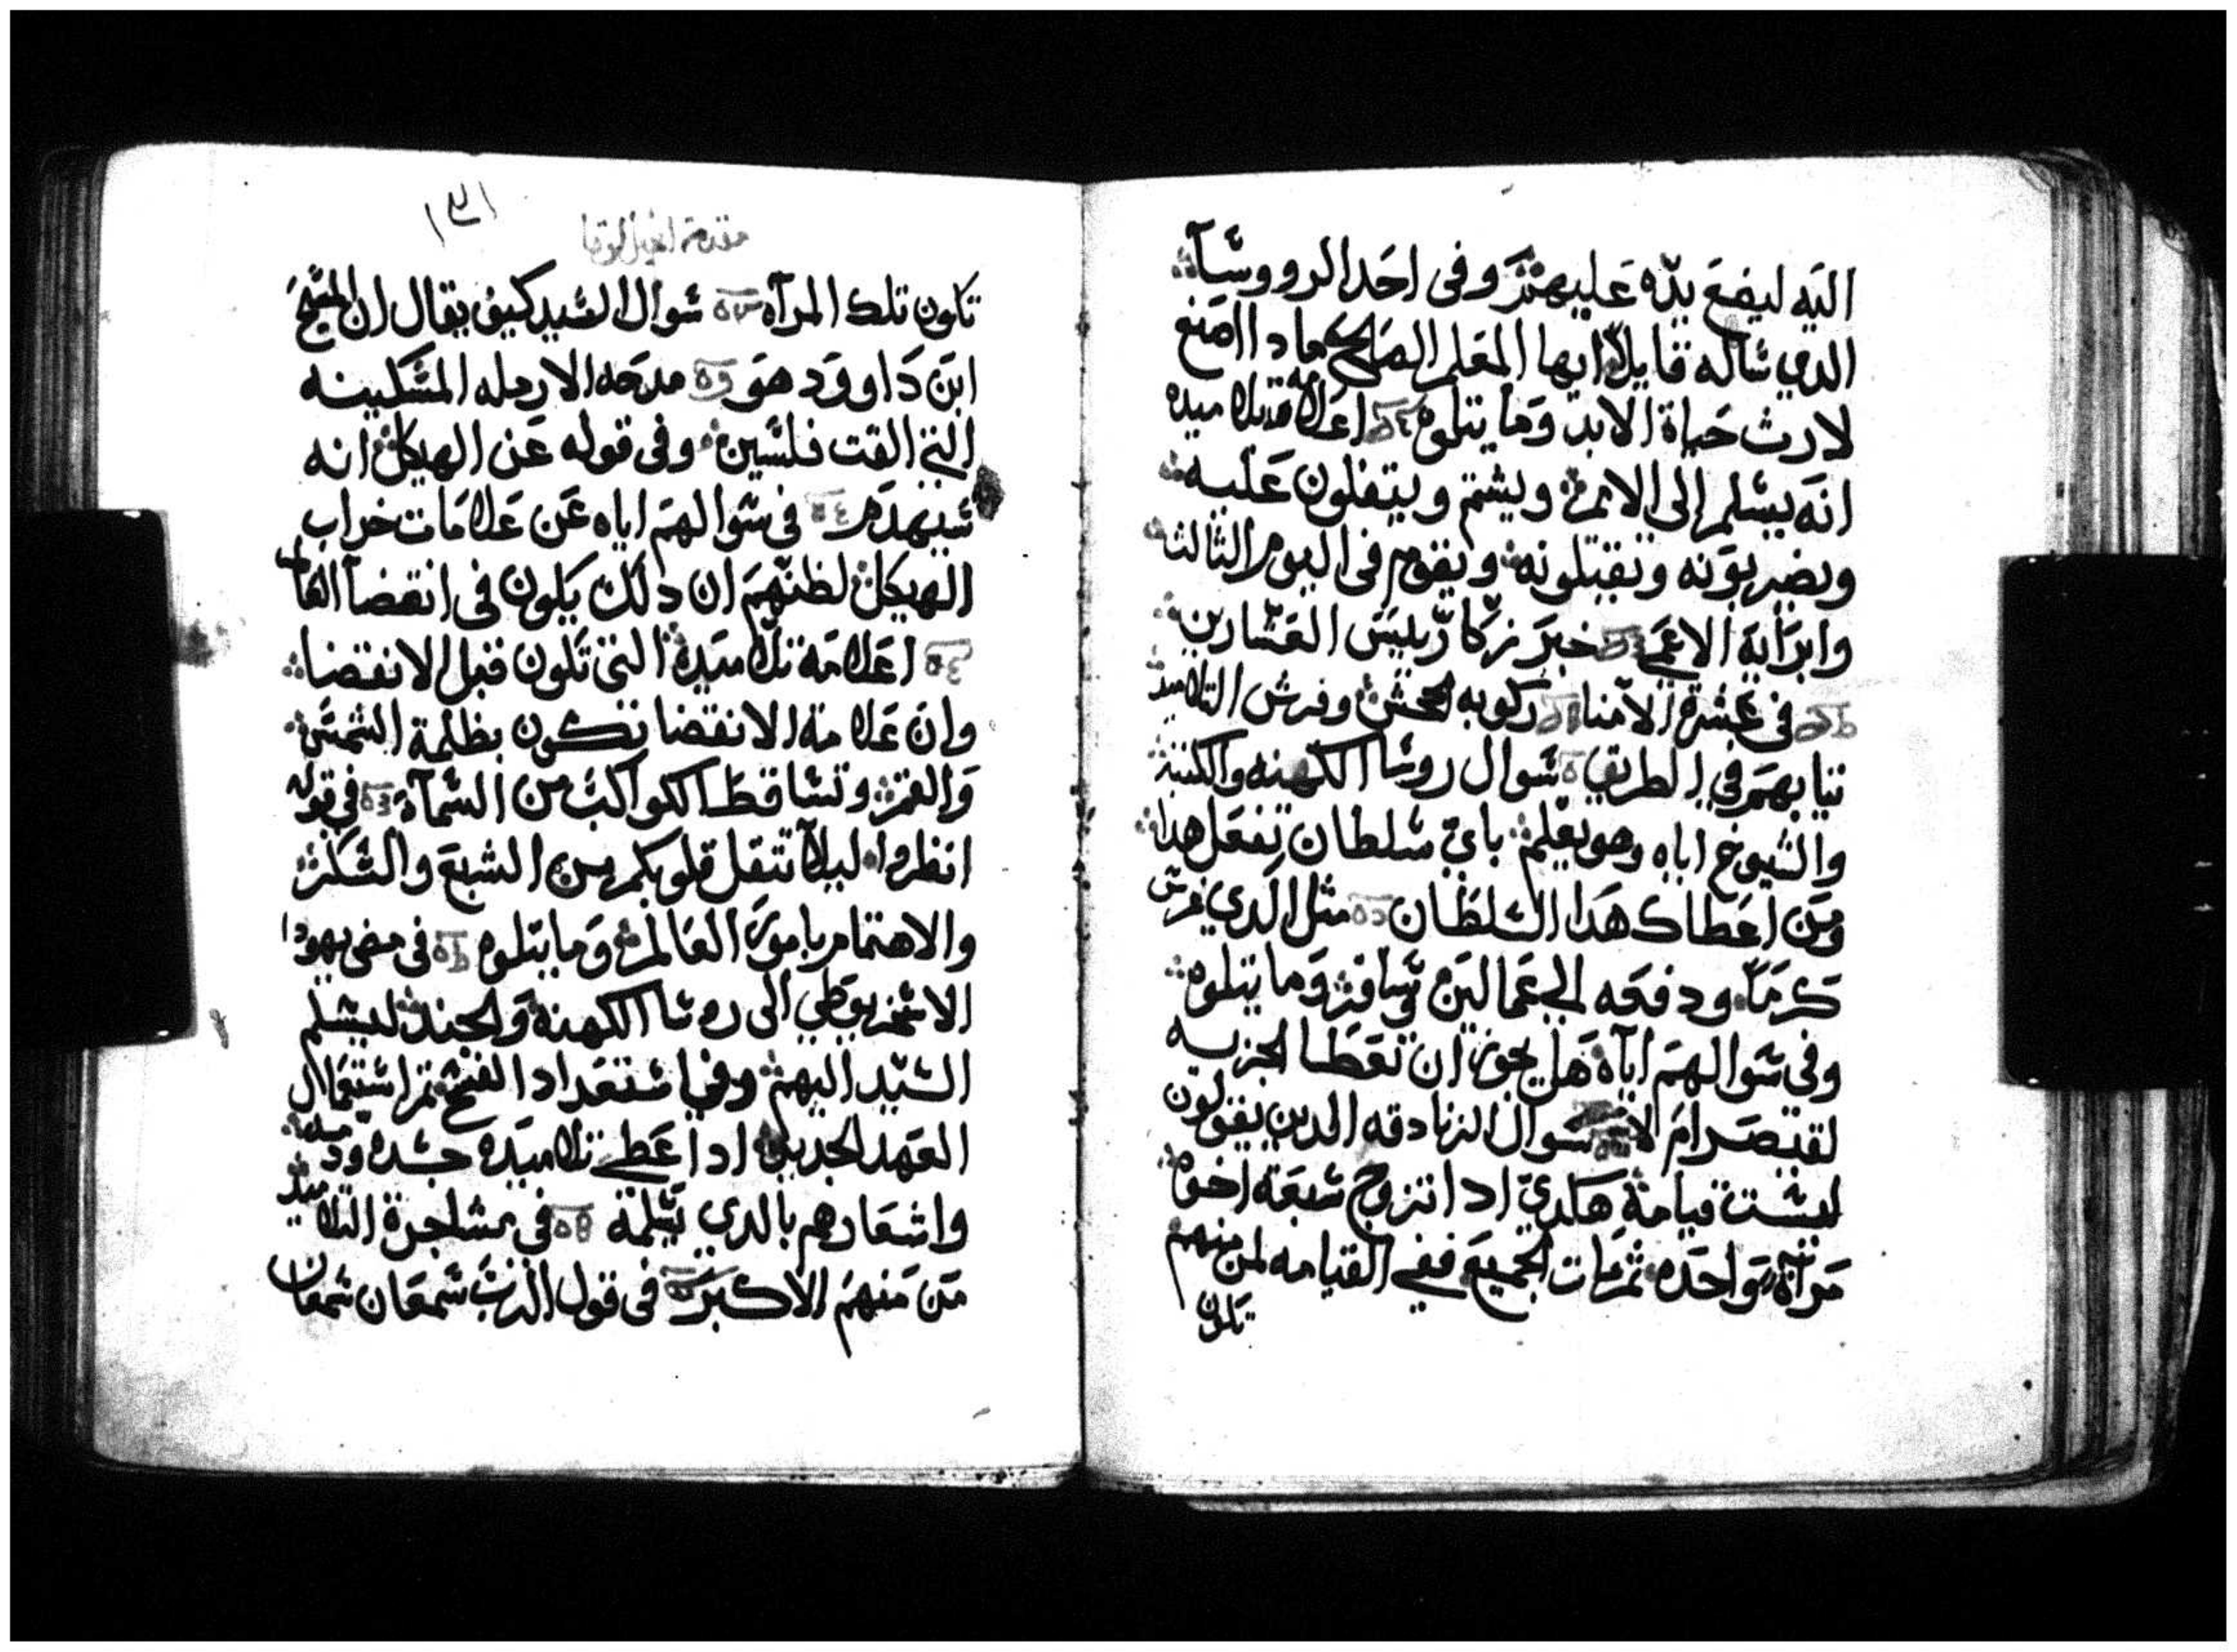 اليه ليضع يده عليهم وفى احد الرووسآ
الدي ساله قايلا ايها المعلم الصالح مادا اصنع
لارث حياة الابد وما يتلوه اعلامه تلاميده
انه يسلم الى الامم ويشتم ويتفلون عليه
ويضربونه ويقتلونه ويقوم فى اليوم الثالث
وابرايه الاعمى خبر زكا رييس العشارين
فى عشرة الامنا ركوبه الجحش وفرش التلاميد
تيابهم في الطريق سوال روسا الكهنه والكتبة
والشيوخ اياه وهو يعلم باي سلطان تفعل هدا
ومن اعطاك هدا السلطان مثل الدي غرس
كرما ودفعه الى عمالين وسافر وما يتلوه
وفى سوالهم اياه هل يجوز ان تعطا الجزيه
لقيصر ام لا سوال الزنادقه الدين يقولون
ليست قيامة هكدي ادا تزوج سبعه اخوه
مرآة واحده ثم مات الجميع ففى القيامه لمن منهم
تكون
١٣١
مقدمة انجيل لوقا
تكون تلك المرآه سوال السيد كيف يقال ان المسيح
ابن داوود هو مدحه الارمله المسكينه
التى القت فلسين وفى قوله عن الهيكل انه
سيهدم فى سوالهم اياه عن علامات خراب
الهيكل لظنهم ان دلك يكون فى انقضآ العالم
اعلامه تلاميده التى تكون قبل الانقضا
وان علامة الانقضا تكون بظلمة الشمس
والقمر وتساقط الكواكب من السمآ فى قوله
انظروا ليلا تتقل قلوبكم من الشبع والسكر
والاهتمام بامور العالم وما يتلوه فى مضى يهودا
الاسخريوطي الى روسا الكهنة والجند ليسلم
السيد اليهم وفي استعداد الفسح ثم استعمال
العهد الجديد اد اعطى تلاميده جسده ودمه
واشعارهم بالدي يسلمه فى مشاجرة التلاميد
من منهم الاكبر فى قول الرب سمعان سمعان